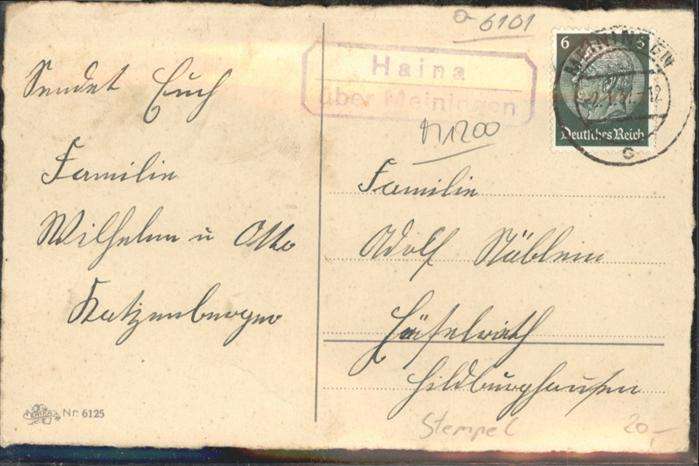 a 6101
Haina
über Meiningen
6 6
Deutsches Reich
MEININGEN
c
1200
Sendet Euch
Familie
Wilhelm u Otto
Katzenberger
Familie
Adolf Stäblein
Häselrieth
Hildburghausen
Nr. 6125
Stempel
20,-